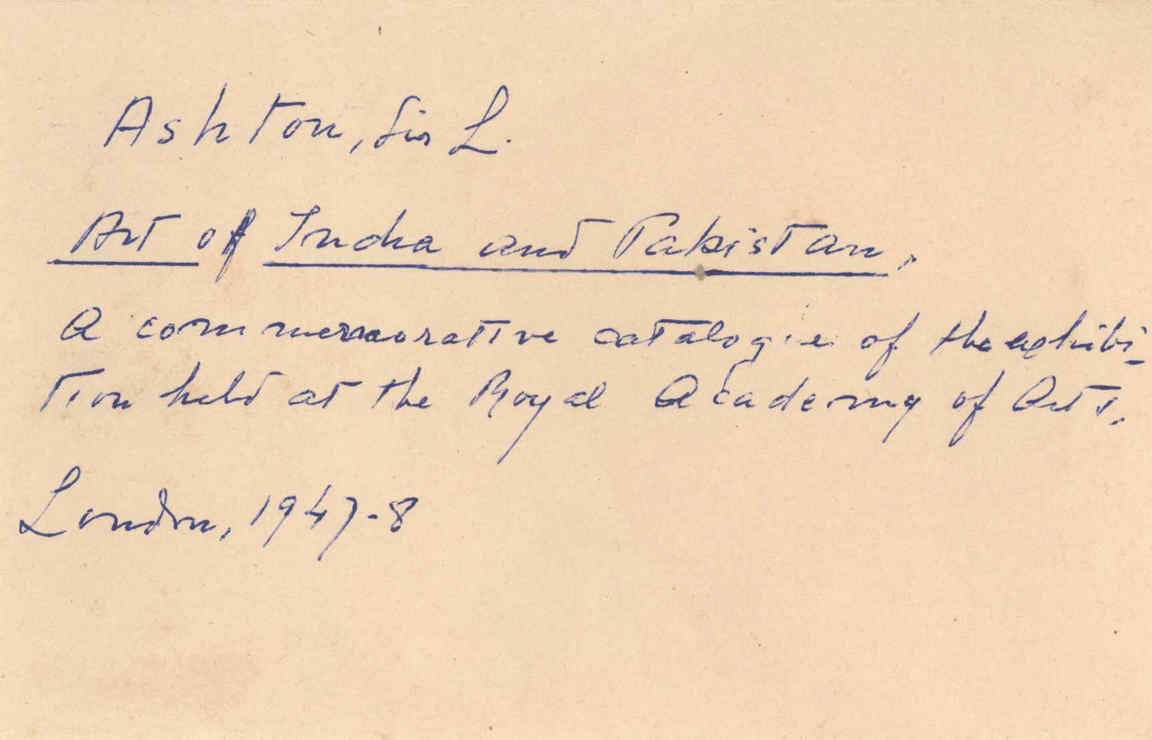 Ashton, Sir L.
Art of India and Pakistan.
A commemorative catalogue of the exhibi-
tion held at the Royal Academy of Arts.
London, 1947-8